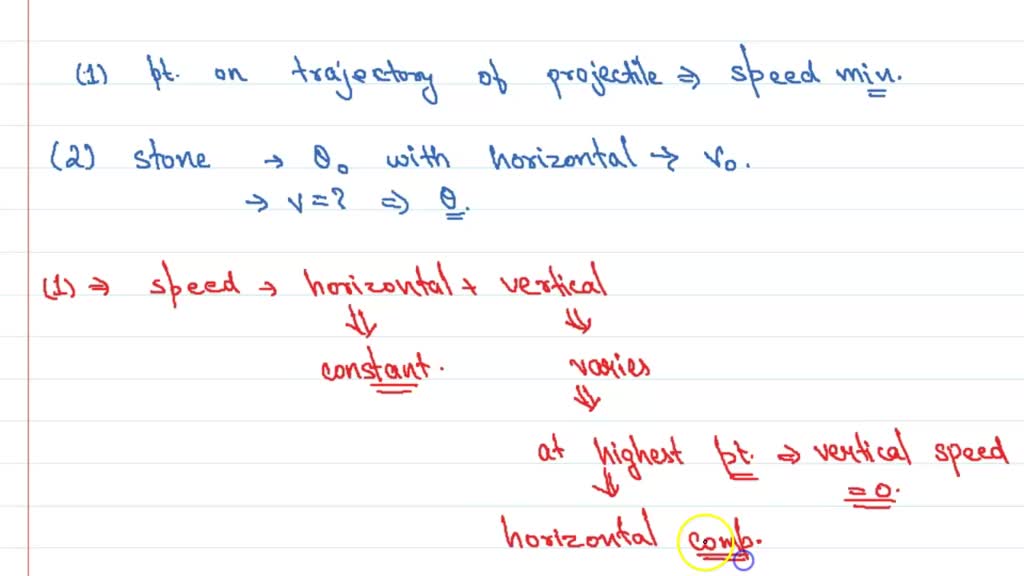 (1) pt. on trajectory of projectile ⇒ speed min.
(2) stone → θ₀ with horizontal → v₀.
→ v=? ⇒ θ.
(1) ⇒ speed → horizontal + vertical
⇓ ⇓
constant. varies
⇓
at highest pt. ⇒ vertical speed
⇓ =0.
horizontal comp.